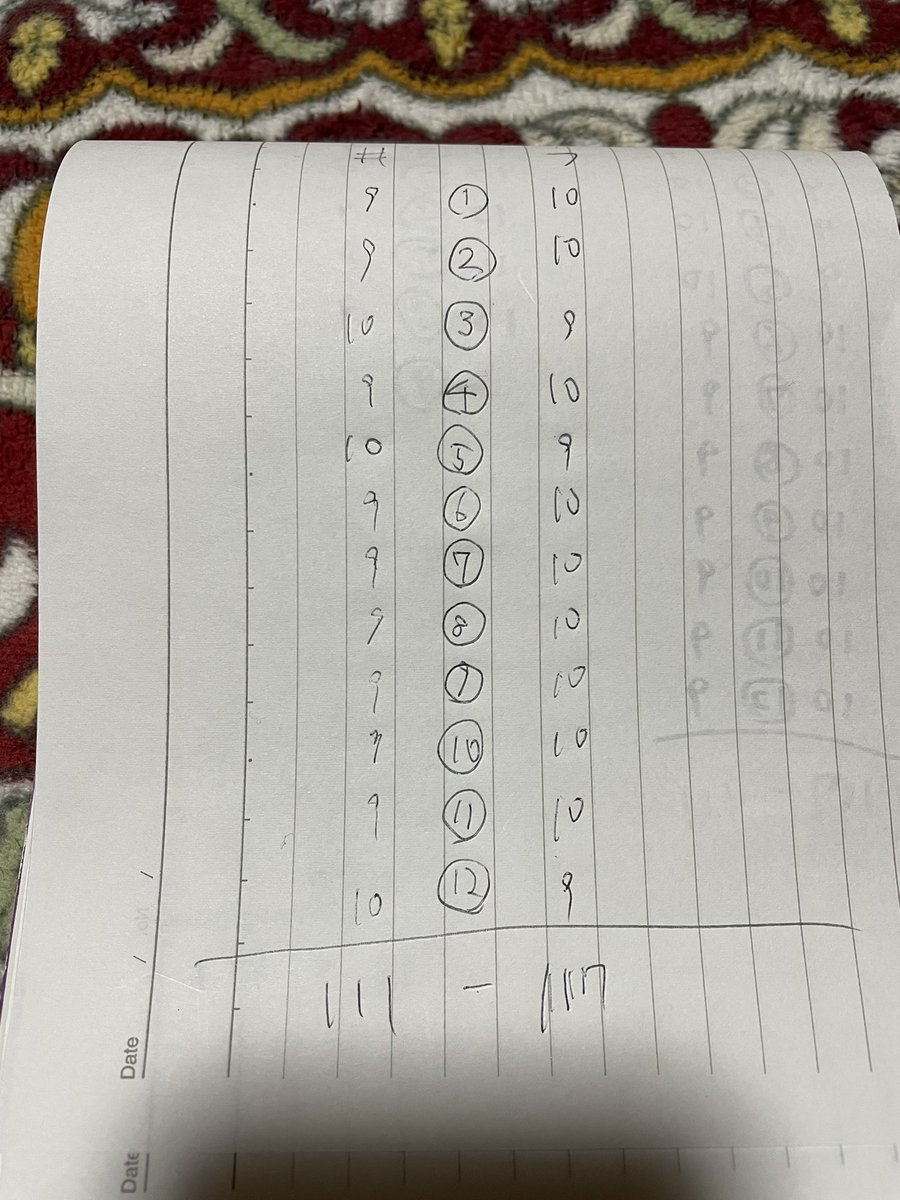 9 ① 10
9 ② 10
10 ③ 9
9 ④ 10
10 ⑤ 9
9 ⑥ 10
9 ⑦ 10
9 ⑧ 10
9 ⑨ 10
9 ⑩ 10
9 ⑪ 10
10 ⑫ 9
111 - 117
Date
Date